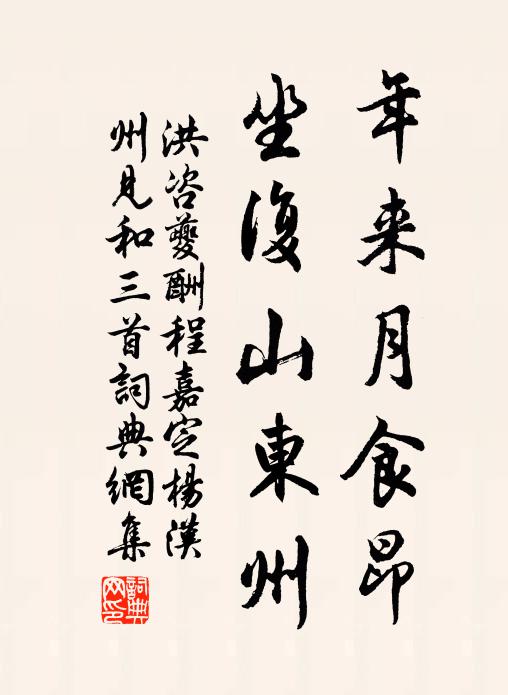 年来月食昂
坐復山東州
洪咨夔酬程嘉定楊漢
州見和三首詞典網集
詞典網印